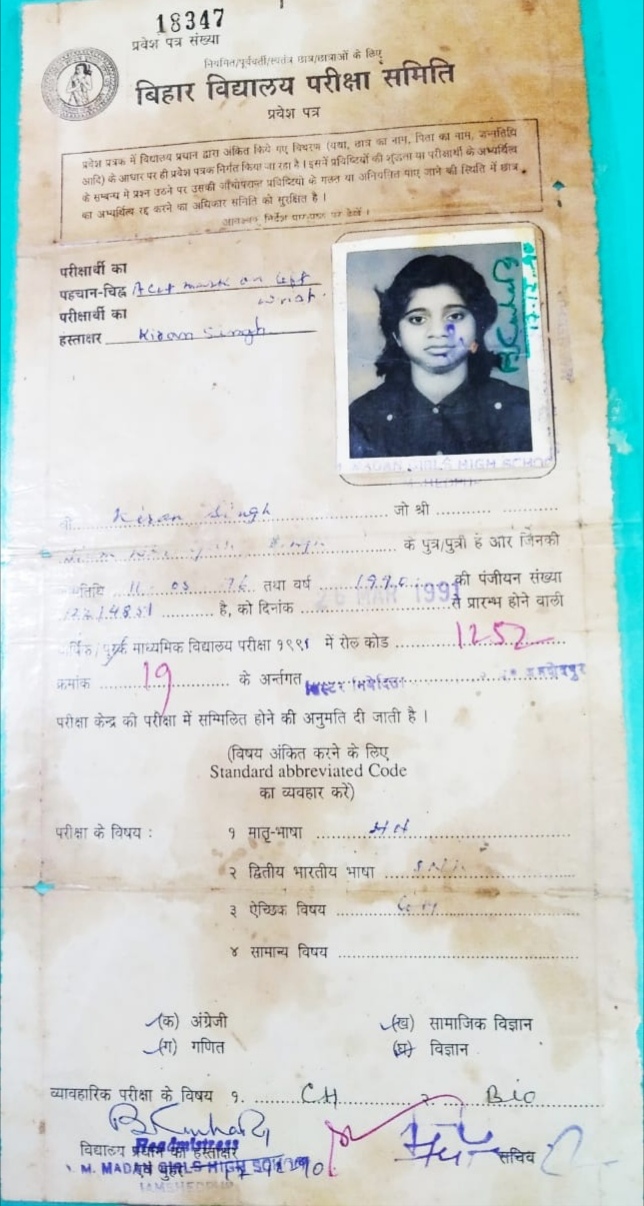 18347
प्रवेश पत्र संख्या
नियमित/पूर्ववर्ती/स्वतंत्र छात्र/छात्राओं के लिए
बिहार विद्यालय परीक्षा समिति
प्रवेश पत्र
प्रवेश पत्रक में विद्यालय प्रधान द्वारा अंकित किये गए विवरण (यथा, छात्र का नाम, पिता का नाम, जन्मतिथि
आदि) के आधार पर ही प्रवेश पत्रक निर्गत किया जा रहा है। इसमें प्रविष्टियों की शुद्धता या परीक्षार्थी के अभ्यर्थित्व
के सम्बन्ध में प्रश्न उठने पर उसकी जाँचोपरान्त प्रविष्टियों के गलत या अनियमित पाए जाने की स्थिति में छात्र
का अभ्यर्थित्व रद्द करने का अधिकार समिति को सुरक्षित है।
आवश्यक निर्देश पर देखें।
परीक्षार्थी का
पहचान-चिह्न A cut mark on left
wrist.
परीक्षार्थी का
हस्ताक्षर Kiran Singh
17.12.90
MADAN GIRLS HIGH SCHOO
Kiran Singh जो श्री
Singh के पुत्र/पुत्री हैं और जिनकी
तिथि 11 03 76 तथा वर्ष 1990 की पंजीयन संख्या
है, को दिनांक 26 MAR 1991 से प्रारम्भ होने वाली
माध्यमिक विद्यालय परीक्षा १९९१ में रोल कोड 1252
क्रमांक 19 के अर्न्तगत सिस्टर निवेदिता जमशेदपुर
परीक्षा केन्द्र की परीक्षा में सम्मिलित होने की अनुमति दी जाती है।
(विषय अंकित करने के लिए
Standard abbreviated Code
का व्यवहार करें)
परीक्षा के विषय : १ मातृ-भाषा HN
२ द्वितीय भारतीय भाषा
३ ऐच्छिक विषय
४ सामान्य विषय
(क) अंग्रेजी (ख) सामाजिक विज्ञान
(ग) गणित (घ) विज्ञान
व्यावहारिक परीक्षा के विषय १. CH २ Bio
विद्यालय प्रधान का हस्ताक्षर
Headmistress
M. MADAN GIRLS HIGH SCHOOL
JAMSHEDPUR
सचिव